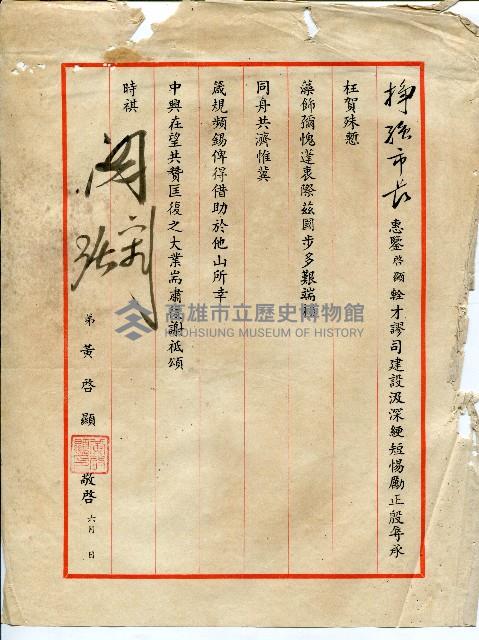 掙強市長惠鑒啓顯輇才謬司建設汲深綆短惕勵正殷辱承
枉賀殊慙
藻飾彌愧蓬衷際茲國步多艱端賴
同舟共濟惟冀
箴規頻錫俾得借助於他山所幸
中興在望共贊匡復之大業耑肅申謝祗頌
時祺
弟黃啓顯敬啓六月 日
閱
高雄市立歷史博物館
KAOHSIUNG MUSEUM OF HISTORY